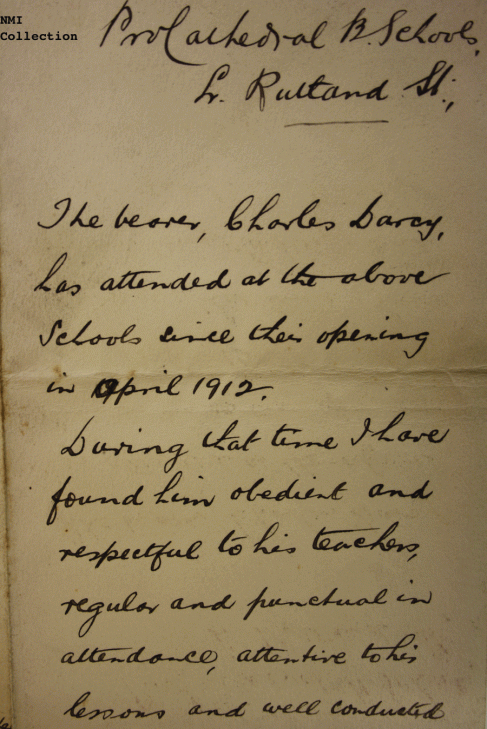 NMI
Collection
ProCathedral B. Schools,
Lr. Rutland St.,
The bearer, Charles Darcy,
has attended at the above
Schools since their opening
in April 1912.
During that time I have
found him obedient and
respectful to his teachers,
regular and punctual in
attendance, attentive to his
lessons and well conducted